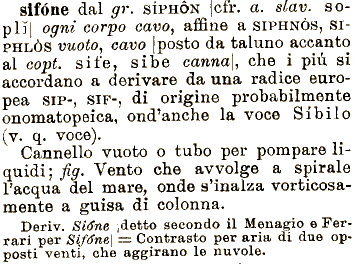 sifóne dal gr. SIPHÔN |cfr. a. slav. so-
plĭ| ogni corpo cavo, affine a SIPHNÒS, SI-
PHLÒS vuoto, cavo |posto da taluno accanto
al copt. sife, sibe canna|, che i più si
accordano a derivare da una radice euro-
pea SIP-, SIF-, di origine probabilmente
onomatopeica, ond'anche la voce Síbilo
(v. q. voce).
Cannello vuoto o tubo per pompare li-
quidi; fig. Vento che avvolge a spirale
l'acqua del mare, onde s'inalza vorticosa-
mente a guisa di colonna.
Deriv. Sióne |detto secondo il Menagio e Fer-
rari per Sifóne| = Contrasto per aria di due op-
posti venti, che aggirano le nuvole.